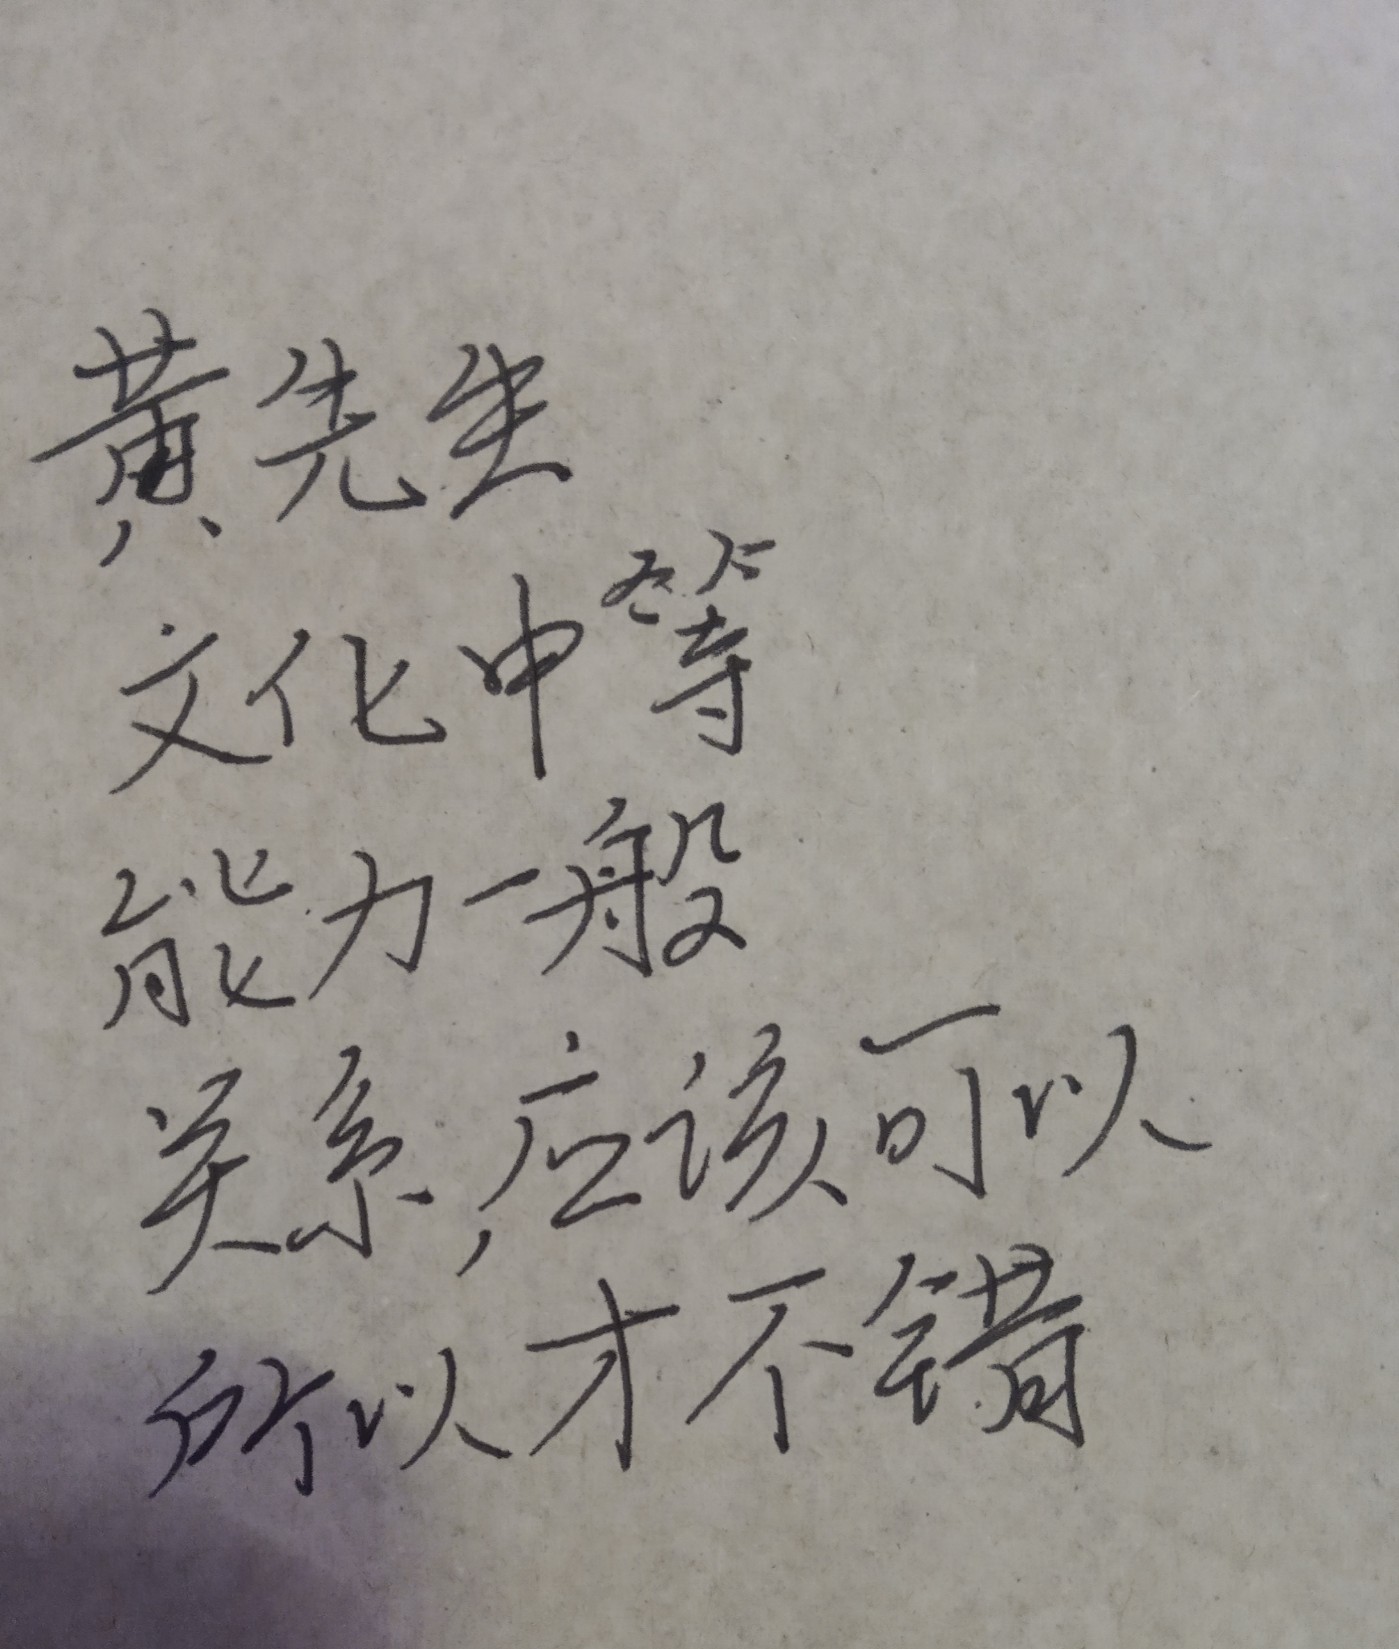 黄先生
文化中等
能力一般
关系,应该可以
所以才不错